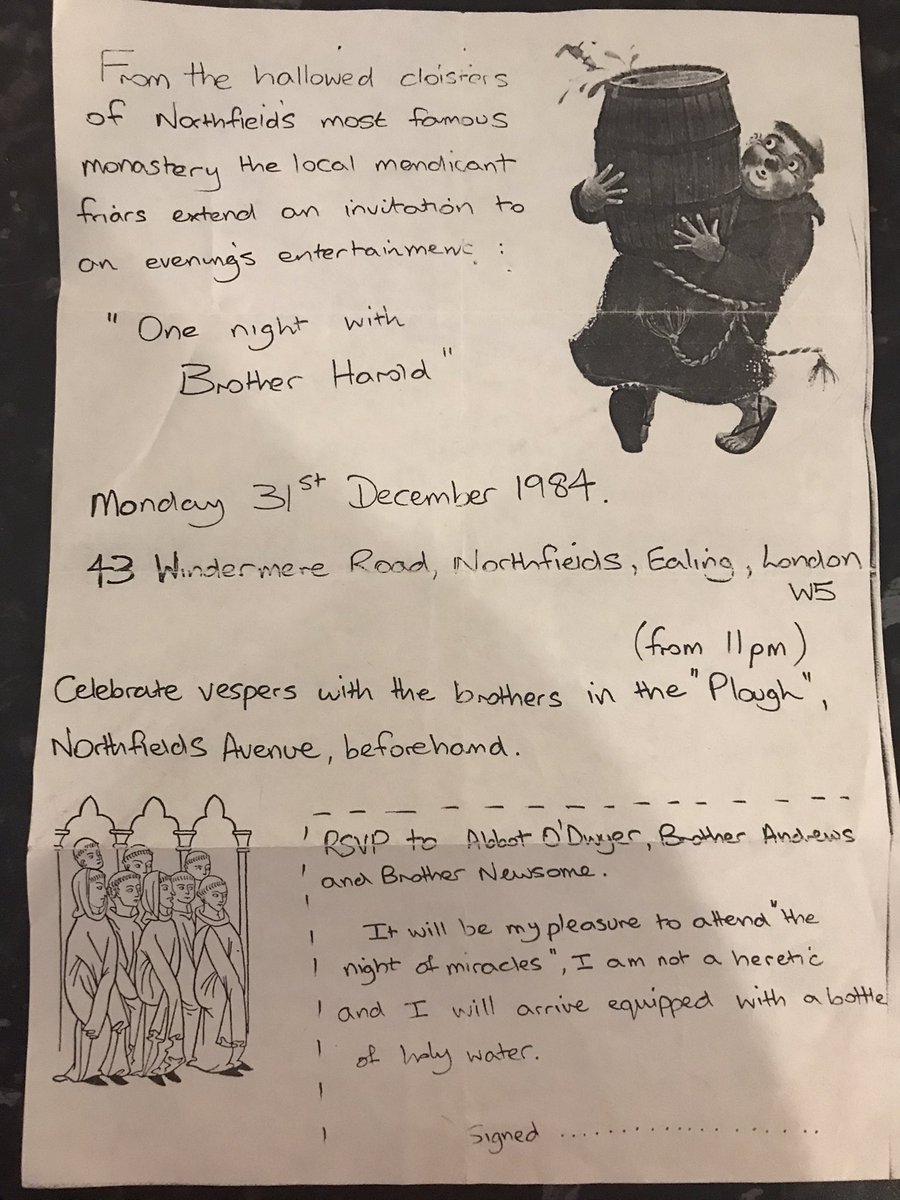 From the hallowed cloisters
of Northfield's most famous
monastery the local mendicant
friars extend an invitation to
an evening's entertainment :
" One night with
Brother Harold "
Monday 31st December 1984.
43 Windermere Road, Northfields, Ealing, London
W5
(from 11pm)
Celebrate vespers with the brothers in the "Plough",
Northfields Avenue, beforehand.
RSVP to Abbot O'Dwyer, Brother Andrews
and Brother Newsome.
It will be my pleasure to attend "the
night of miracles", I am not a heretic
and I will arrive equipped with a bottle
of holy water.
Signed ....................